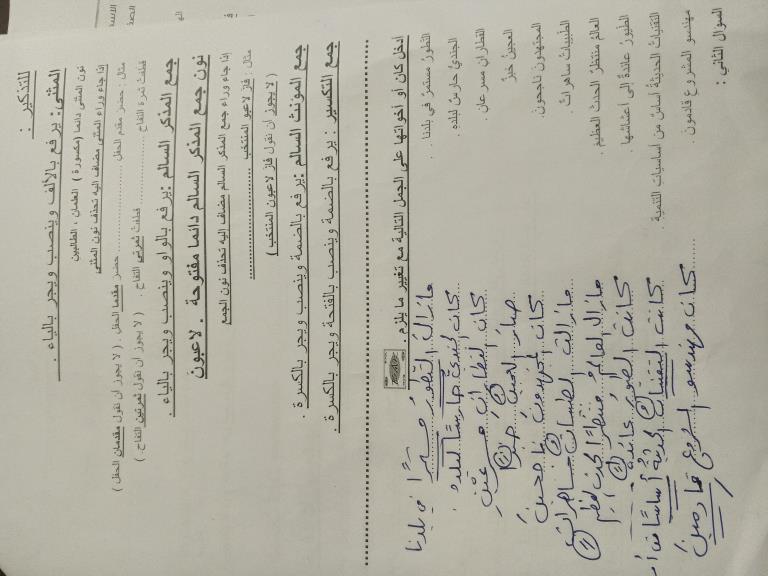 للتذكير :
المثنى: يرفع بالألف وينصب ويجر بالياء .
نون المثنى دائما (مكسورة ) العلمان ، الطالبين
إذا جاء وراء المثنى مضاف اليه تحذف نون المثنى
مثال : حضر مقدم الحفل ............ حضر مقدما الحفل . ( لا يجوز ان نقول مقدمان الحفل )
قطفت ثمرة التفاح ............ قطفت ثمرتي التفاح . ( لا يجوز ان نقول ثمرتين التفاح . )
جمع المذكر السالم :يرفع بالواو وينصب ويجر بالياء .
نون جمع المذكر السالم دائما مفتوحة . لاعبون
إذا جاء وراء جمع المذكر السالم مضاف اليه تحذف نون الجمع
مثال : فاز لاعبو المنتخب ............
( لا يجوز ان نقول فاز لاعبون المنتخب )
جمع المؤنث السالم :يرفع بالضمة وينصب ويجر بالكسرة .
جمع التكسير : يرفع بالضمة وينصب بالفتحة ويجر بالكسرة .
ادخل كان أو أخواتها على الجمل التالية مع تغيير ما يلزم .
التطور مستمر في بلدنا . مازال التطور مستمرًا في بلدنا
الجندي حارس لبلده . كان الجندي حارسًا لبلده
القطاران مسرعان . كان القطاران مسرعين
العجين خبز . صار العجين خبزًا
المجتهدون ناجحون . كان المجتهدون ناجحين
الطبيبات ساهرات . مازالت الطبيبات ساهرات
العالم منتظر الحدث العظيم . مازال العالم منتظرًا الحدث العظيم
الطيور عائدة إلى أعشاشها . كانت الطيور عائدة
التقنيات الحديثة أساس من أساسيات التنمية . كانت التقنيات الحديثة أساسًا من
مهندسو المشروع قادمون . كان مهندسو المشروع قادمين
السؤال الثاني :